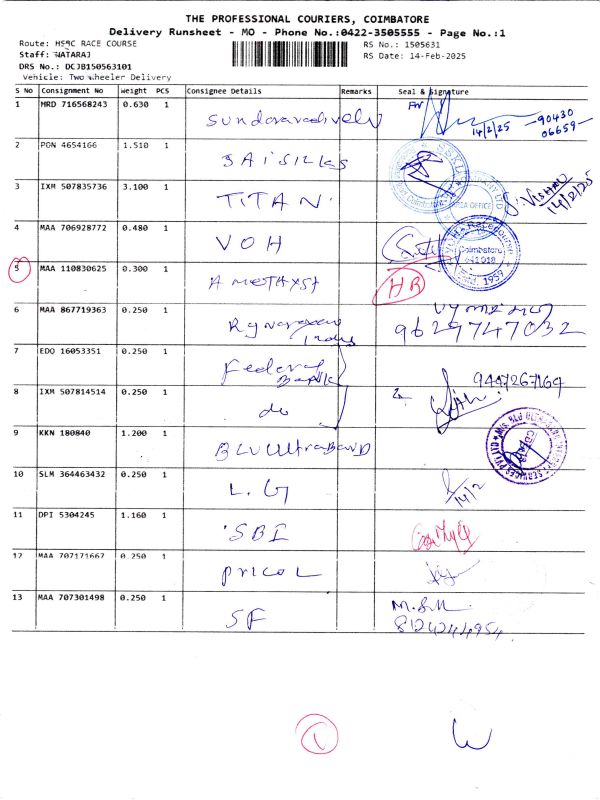 THE PROFESSIONAL COURIERS, COIMBATORE
Delivery Runsheet - MO - Phone No.:0422-3505555 - Page No.:1
Route: HSBC RACE COURSE
RS No.: 1505631
Staff: NATARAJ
RS Date: 14-Feb-2025
DRS No.: DCJB150563101
Vehicle: Two Wheeler Delivery
S No Consignment No Weight PCS Consignee Details Remarks Seal & Signature
1 MRD 716568243 0.630 1 For 14/2/25 -90430 06659-
2 PON 4654166 1.510 1 SAI SILKS
3 IXM 507835736 3.100 1 TITAN
4 MAA 706928772 0.480 1 VOH Racecourse Coimbatore 641 018
5 MAA 110830625 0.300 1 HR
6 MAA 867719363 0.250 1 9629747032
7 EDO 16053351 0.250 1 Federal Bank 9447267164
8 IXM 507814514 0.250 1 do
9 KKN 180840 1.200 1
10 SLM 364463432 0.250 1 L.G 14/2
11 DPI 5304245 1.160 1 SBI
12 MAA 707171667 0.250 1 PRICOL
13 MAA 707301498 0.250 1 SF
1